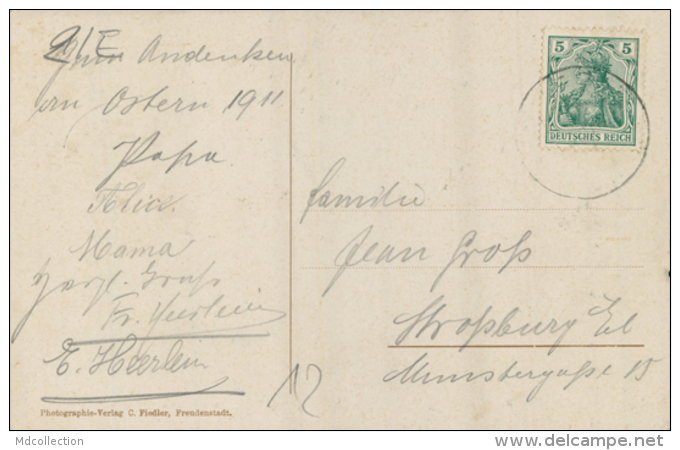 Zum Andenken
an Ostern 1911
Papa
Alice.
Mama
Herzl. Gruß
Fr. Heerlein
E. Heerlein
12
Photographie-Verlag C. Fiedler, Freudenstadt.
5 5
DEUTSCHES REICH
Familie
Jean Groß
Straßburg Els
Münstergaße 15
Mdcollection
www.delcampe.net